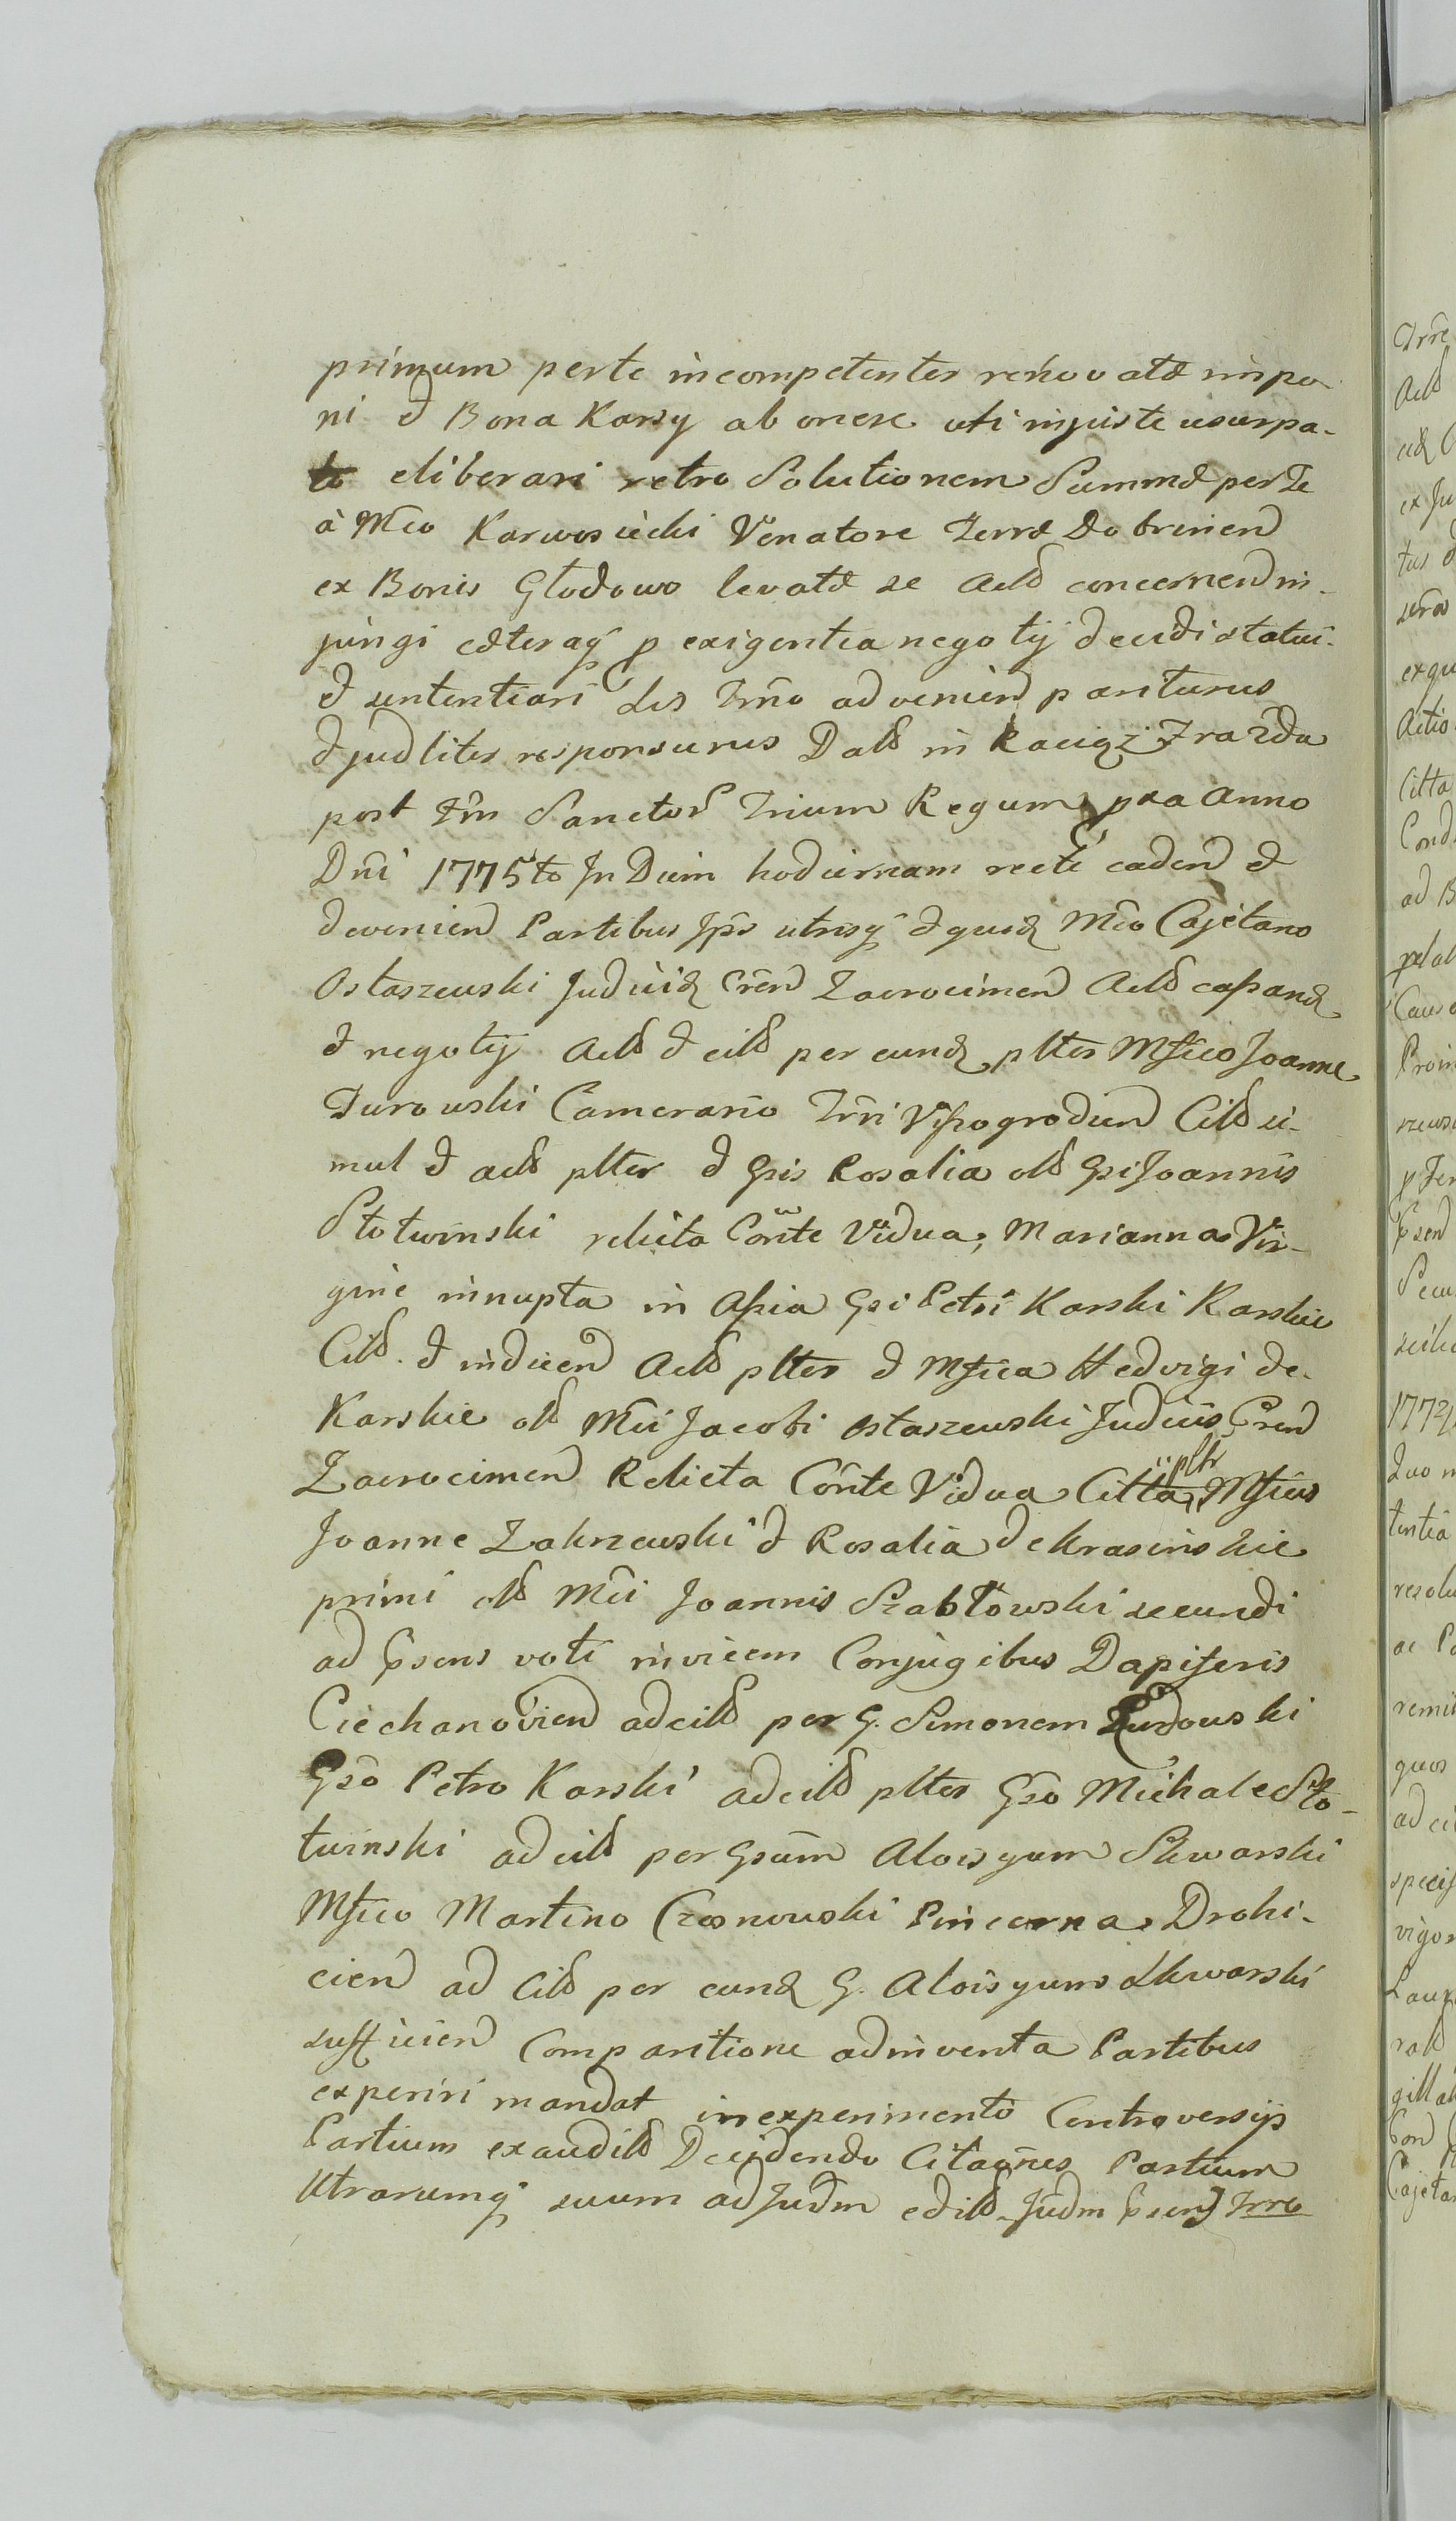 primum perte incompetenter renovatæ impo-
ni & Bona Karsy ab onere uti injuste usurpa-
to eliberari retro Solutionem Summæ per Te
à Mco Karwosiecki Venatore Terræ Dobrinen
ex Bonis Głodowo levatæ se Actt concernen in-
jungi cæteraq p exigentia negotij decidi statui
& sententiari Sis Trno advenien pariturus
& judliter responsurus Datt in Raciąż Fra 2da
post Fm Sanctor Trium Regum pxa Anno
Dni 1775to In Diem hodiernam recte caden &
devenien Partibus Ips utrisq & quid Mco Cajetano
Ostaszewski Judicid Cren Zacrocimen Actt cassand
& negotij Actt & citt per eund plter Mfico Joanne
Turowski Camerario Trri Vissogroden Citt si-
mul & actt plter & Gsis Rosalia ott Gsi Joannis
Słotwinski relicta Conte Vidua, Marianna Vir-
gine innupta in Assia Gsi Petri Karski Karskie
Citt. & indicen Actt plter & Mfica Hedvigi de
Karskie ott Mci Jacobi Ostaszewski Judicis Cren
Zacrocimen Relicta Conte Vidua Citta, plr Mficis
Joanne Zakrzewski & Rosalia de Krasinskie
primi ott Mci Joannis Szabłowski secundi
ad Psens voti invicem Conjugibus Dapiferis
Ciechanovien adcitt per G. Simonem Budowski
Gso Petro Karski adcitt plter Gso Michale Sło-
twinski adcitt per Gsum Aloisyum Skwarski
Mfico Martino Czosnowski Pincerna Drohi-
cien ad Citt per eund G. Aloisyum Skwarski
sufficien Comparitione adinventa Partibus
experiri mandat in experimento Controversijs
Partium exauditt Decidendo Citaones Partium
Utrarumq suum ad Judm editt Judm Psens Trre